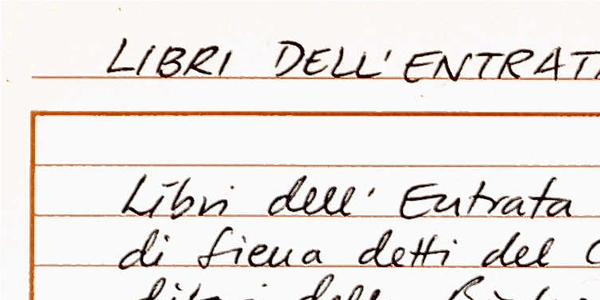 LIBRI DELL'ENTRATA
Libri dell' Entrata
di Siena detti del
della